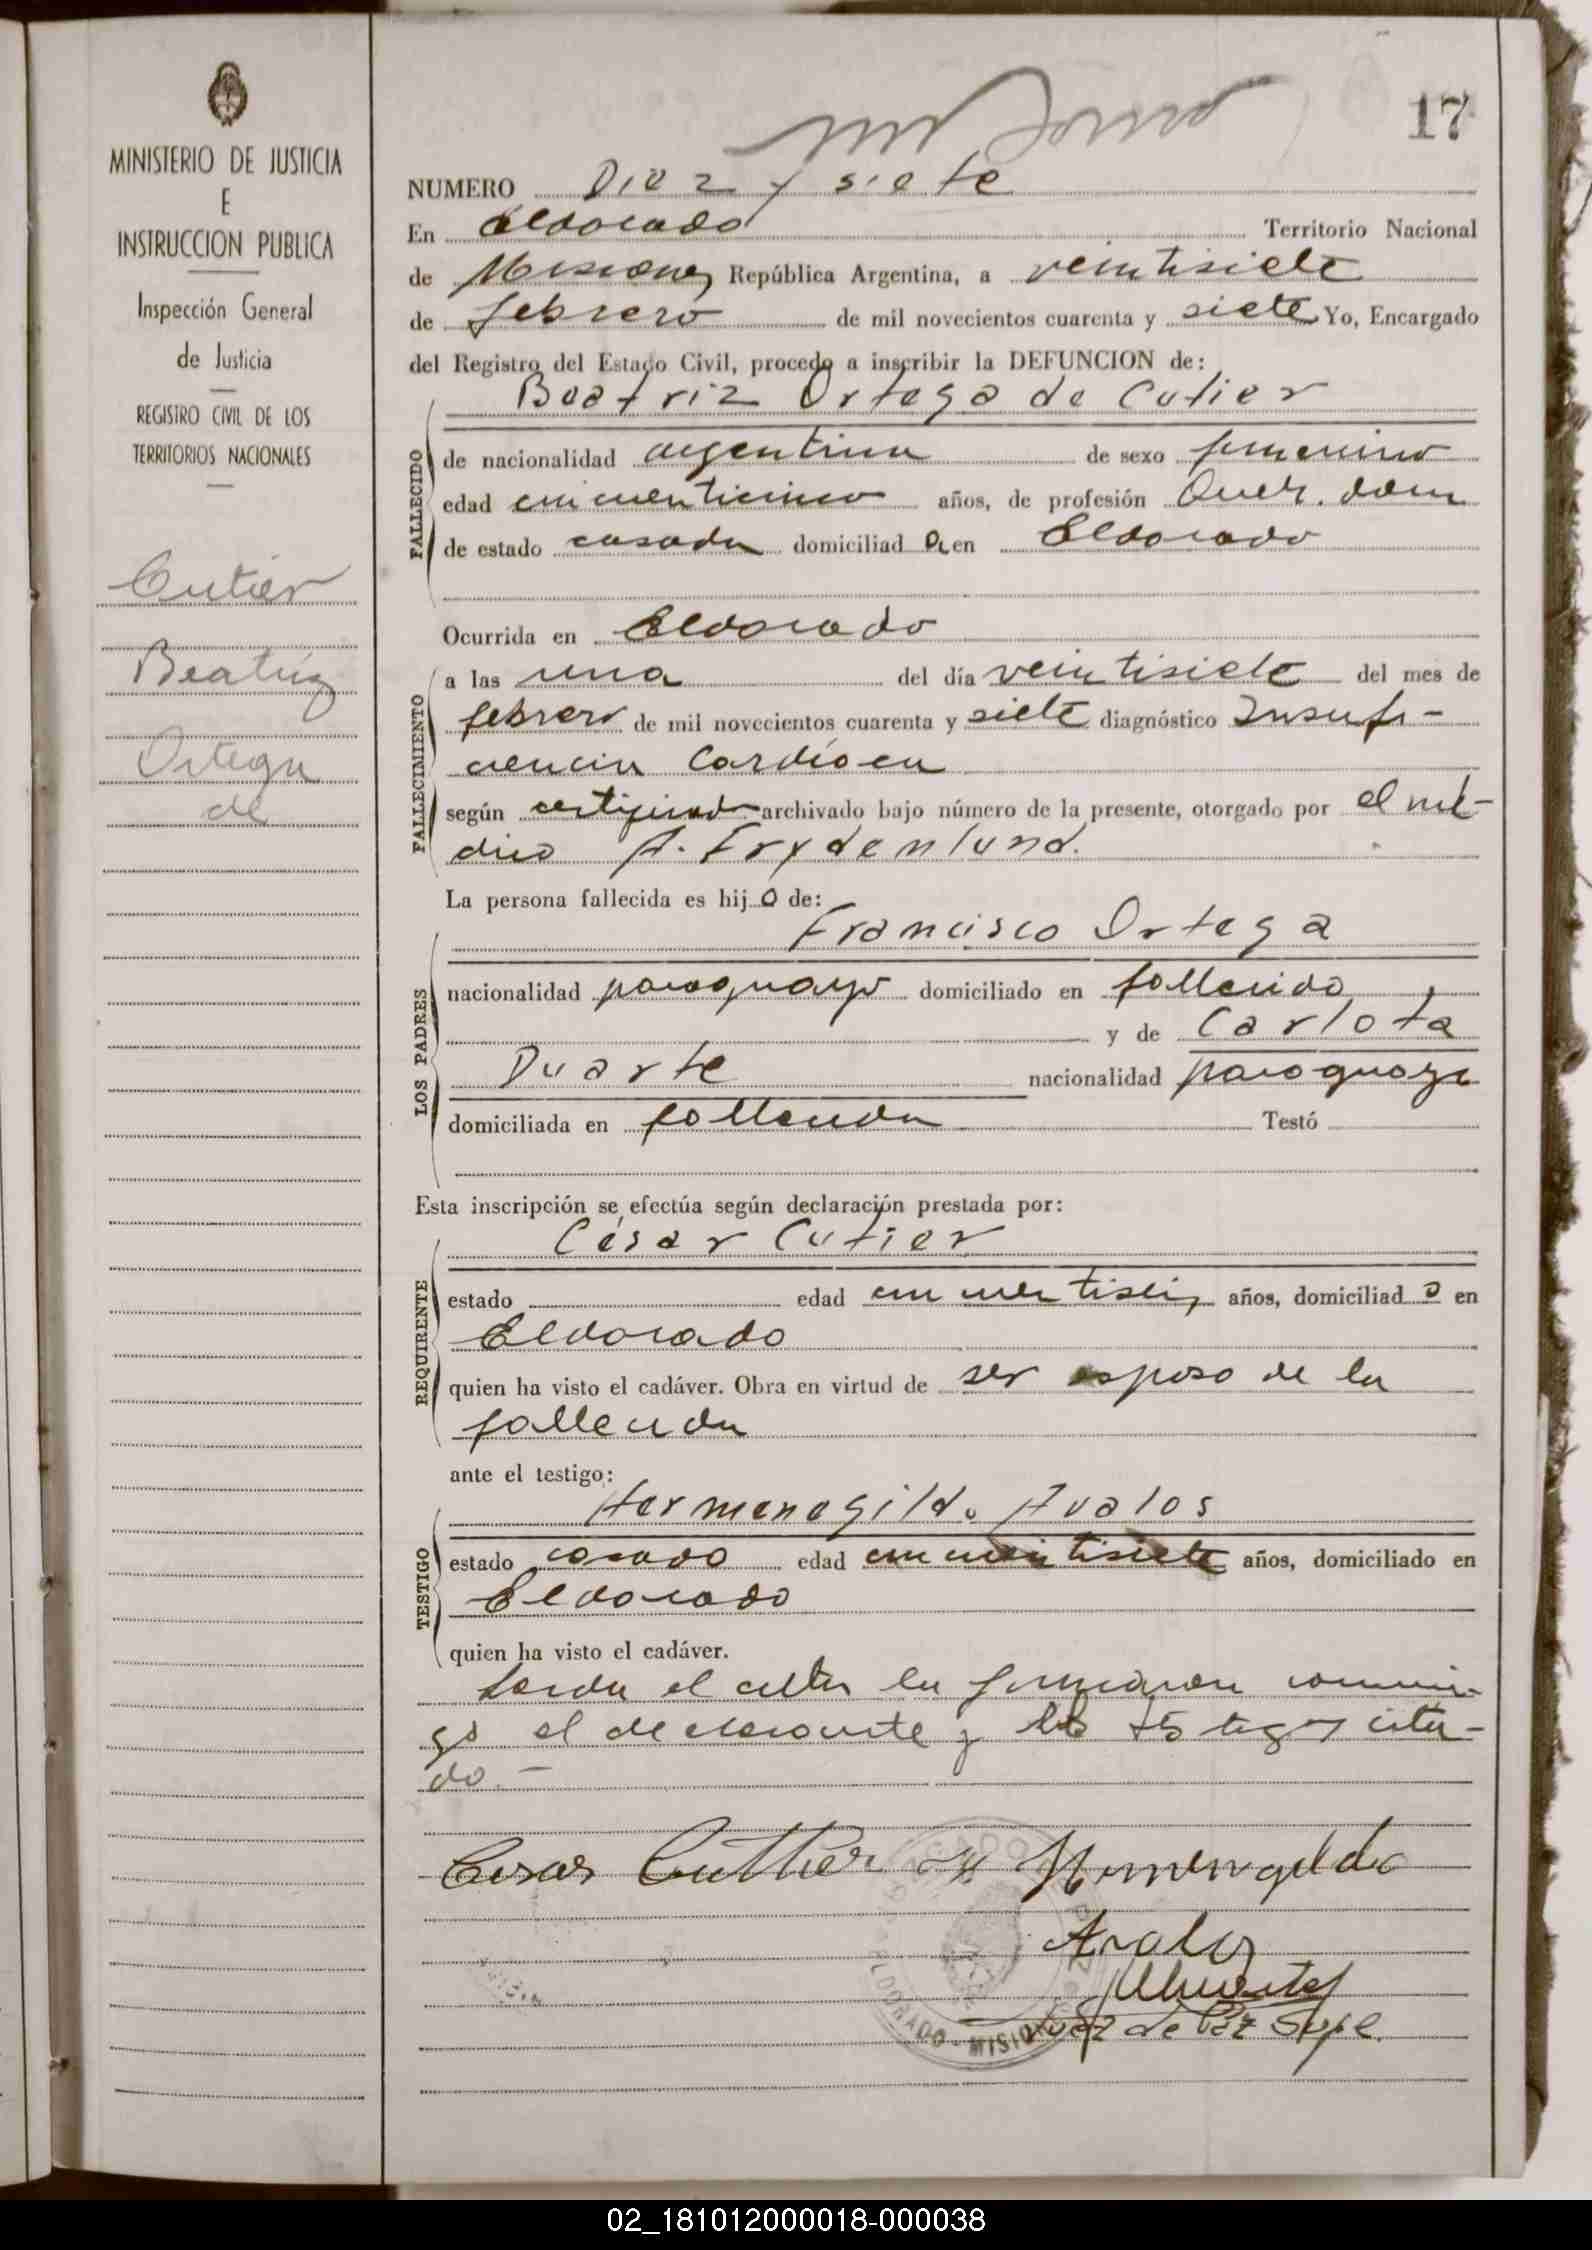 17
MINISTERIO DE JUSTICIA
E
INSTRUCCION PUBLICA
Inspección General
de Justicia
REGISTRO CIVIL DE LOS
TERRITORIOS NACIONALES
Cutier
Beatriz
Ortega
de
NUMERO Diez y siete
En Eldorado Territorio Nacional
de Misiones República Argentina, a veintisiete
de febrero de mil novecientos cuarenta y siete Yo, Encargado
del Registro del Estado Civil, procedo a inscribir la DEFUNCION de:
Beatriz Ortega de Cutier
FALLECIDO
de nacionalidad argentina de sexo femenino
edad cincuenticinco años, de profesión Queh. dom
de estado casada domiciliad a en Eldorado
Ocurrida en Eldorado
FALLECIMIENTO
a las una del día veintisiete del mes de
febrero de mil novecientos cuarenta y siete diagnóstico Insufi-
ciencia Cardíaca
según certificado archivado bajo número de la presente, otorgado por el mé-
dico A. Frydenlund.
La persona fallecida es hij o de:
Francisco Ortega
LOS PADRES
nacionalidad paraguayo domiciliado en fallecido
y de Carlota
Duarte nacionalidad paraguaya
domiciliada en fallecida Testó
Esta inscripción se efectúa según declaración prestada por:
César Cutier
REQUIRENTE
estado edad cincuentiseis años, domiciliad o en
Eldorado
quien ha visto el cadáver. Obra en virtud de ser esposo de la
fallecida
ante el testigo:
Hermenegildo Avalos
TESTIGO
estado casado edad cincuentisiete años, domiciliado en
Eldorado
quien ha visto el cadáver.
Leída el acta la firmaron conmi-
go el declarante y los testigos cita-
do.-
Cesar Cuthier Hermengildo
Avalos
Juez de Paz Supl.
ELDORADO - MISIONES
02_181012000018-000038